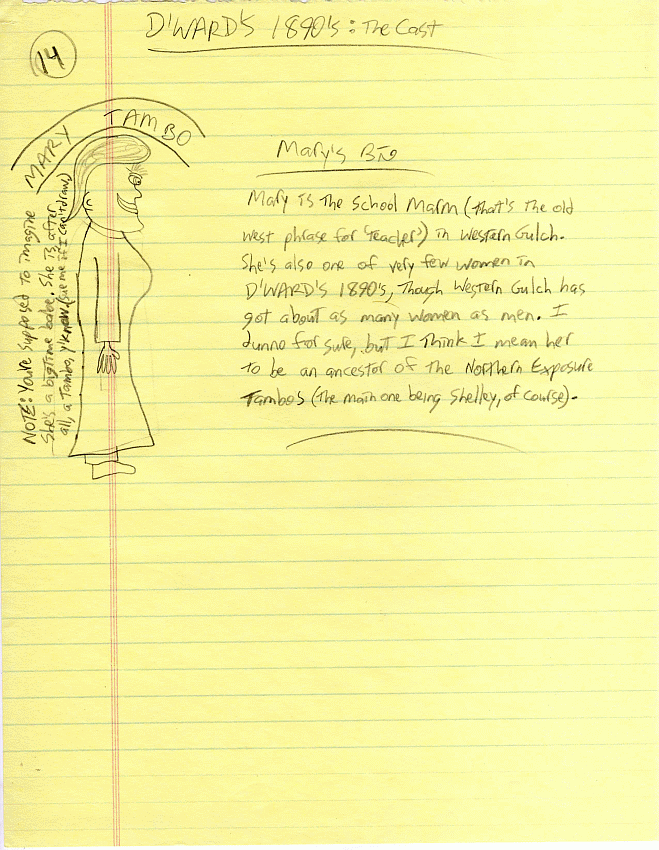 D'WARD'S 1890's: The Cast
14
MARY TAMBO
NOTE: You're supposed to imagine
She's a bigtime babe. She is after
all, a Tambo, y'know (sue me if I can't draw)
Mary's Bio
Mary is the School Marm (that's the old
west phrase for 'teacher') in Western Gulch.
She's also one of very few women in
D'WARD'S 1890's, Though Western Gulch has
got about as many women as men. I
dunno for sure, but I Think I mean her
to be an ancestor of the Northern Exposure
Tambos (The main one being Shelley, of course).